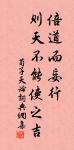 倍道而妄行
则天不能使之吉
荀子天论词典网集